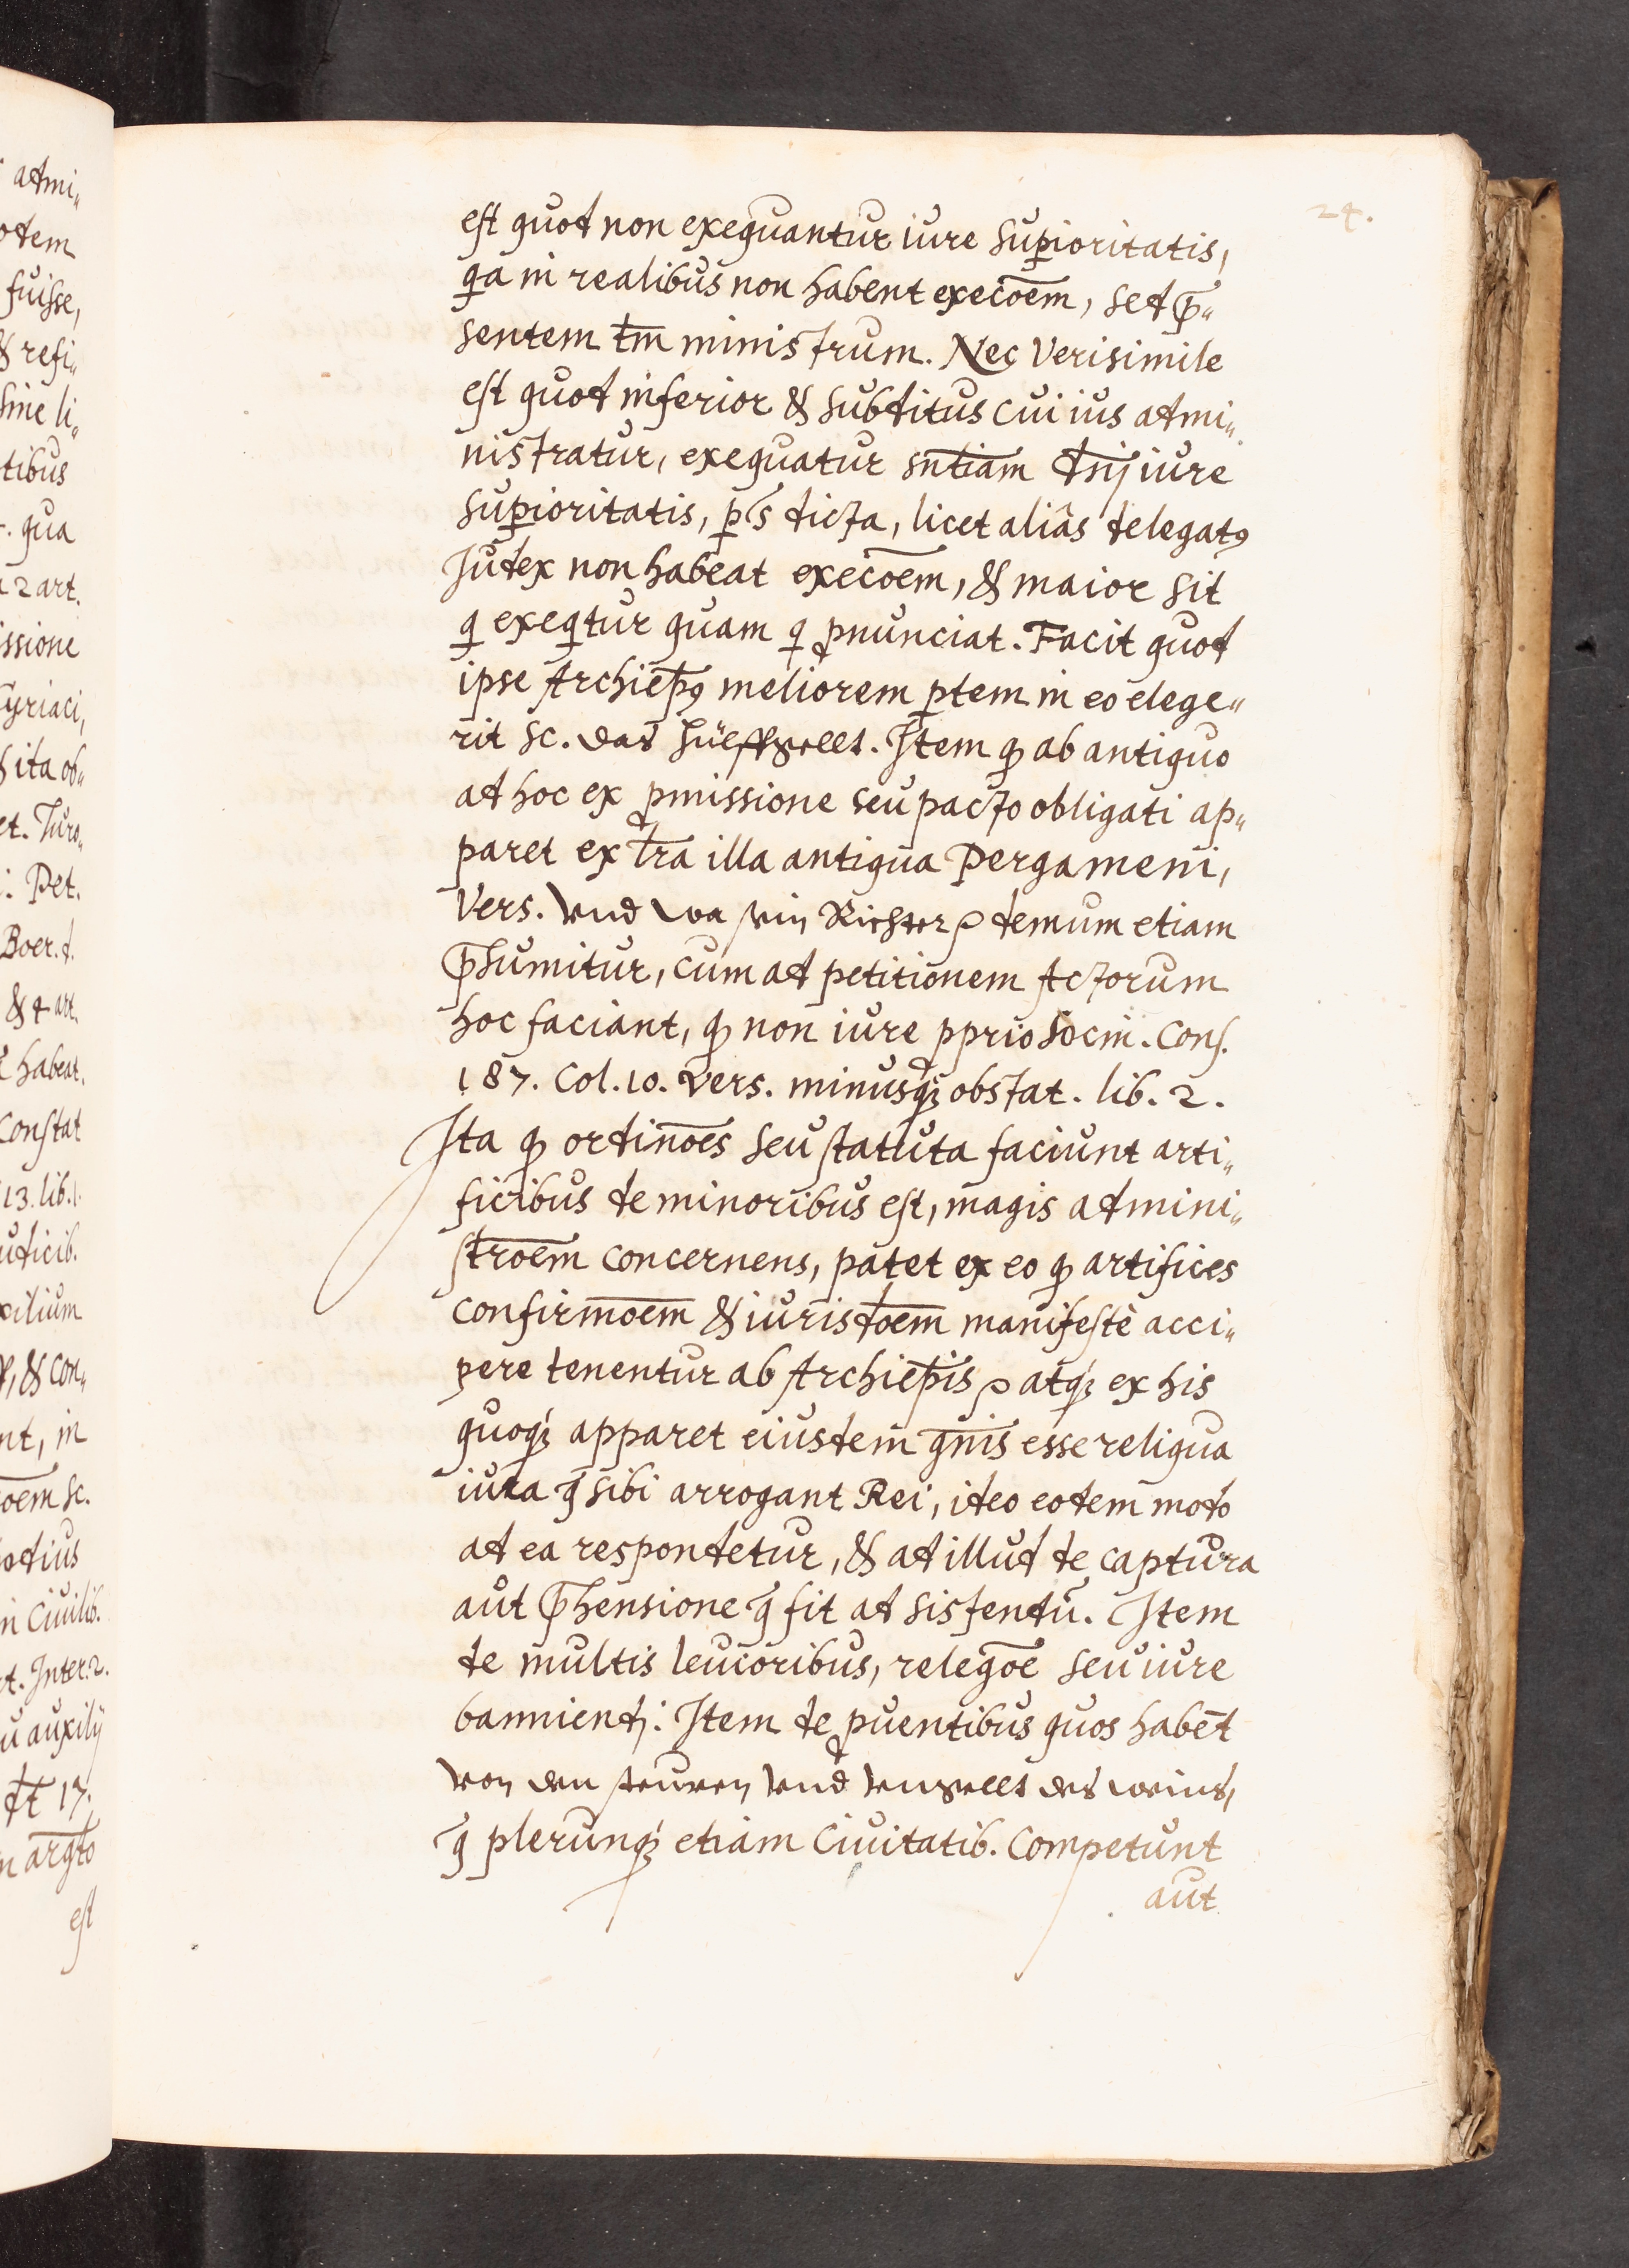 24.
est quod non exequantur iure sup̲ioritatis,
qa in realibus non habent execo͞em, sed p͞rę„
sentem tm̄ ministrum. Nec Verisimile
est quod inferior & subditus cui ius admi„
nistratur, exequatur sn͞tiam dn͞ij iure
sup̲ioritatis, p̲s dicta, licet aliâs delegatꝰ
Iudex non habeat execo͞em, & maior sit
q exeqtur quam q ꝓnunciat. Facit quod
ipse Archiep͞ꝰ meliorem p̲tem in eo elege„
rit sc. das hüeffgellt. Item ꝙ ab antiquo
ad hoc ex ꝓmissione seu pacto obligati ap„
paret ex l͞ra illa antiqua Pergameni,
Vers. Vnd wa sein Richter demum etiam
p͞sumitur, cum ad petitionem Actorum
hoc faciant, ꝙ non iure ꝓprio Socin. Cons.
187. Col. 10. Vers. minusqꝫ obstat. lib. 2.
Ita ꝙ ordino͞es seu statuta faciunt arti„
ficibus de minoribus est, magis admini„
stro͞em concernens, patet ex eo ꝙ artifices
confirmo͞em & iurisdo͞em manifestè acci„
pere tenentur ab Archiep͞is atqꝫ ex his
quoqꝫ apparet eiusdem gn͞is esse reliqua
iura q̄ sibi arrogant Rei, ideo eodem modo
ad ea respondetur, & ad illud de captura
aut p͞hensione q̄ fit ad sistendū. Item
de multis leuioribus, relego͞e seu iure
banniendj: Item de ꝓuentibus quos habēt
von den steuren vnd vngellt des weins,
q̄ plerunqꝫ etiam Ciuitatib. Competunt
aut
admi„
odem
fuisse,
& resi„
sine li„
tibus
qua
2 art.
issione
yriaci,
& ita ob„
et. Turo.
Pet.
Boer. d.
& 4 art.
habeat.
Constat
13. lib. 1.
udicib.
xilium
& con„
nt, in
o͞em sc.
odius
in Ciuilib.
t. Inter. 2.
auxilij
17.
arg͞to
est